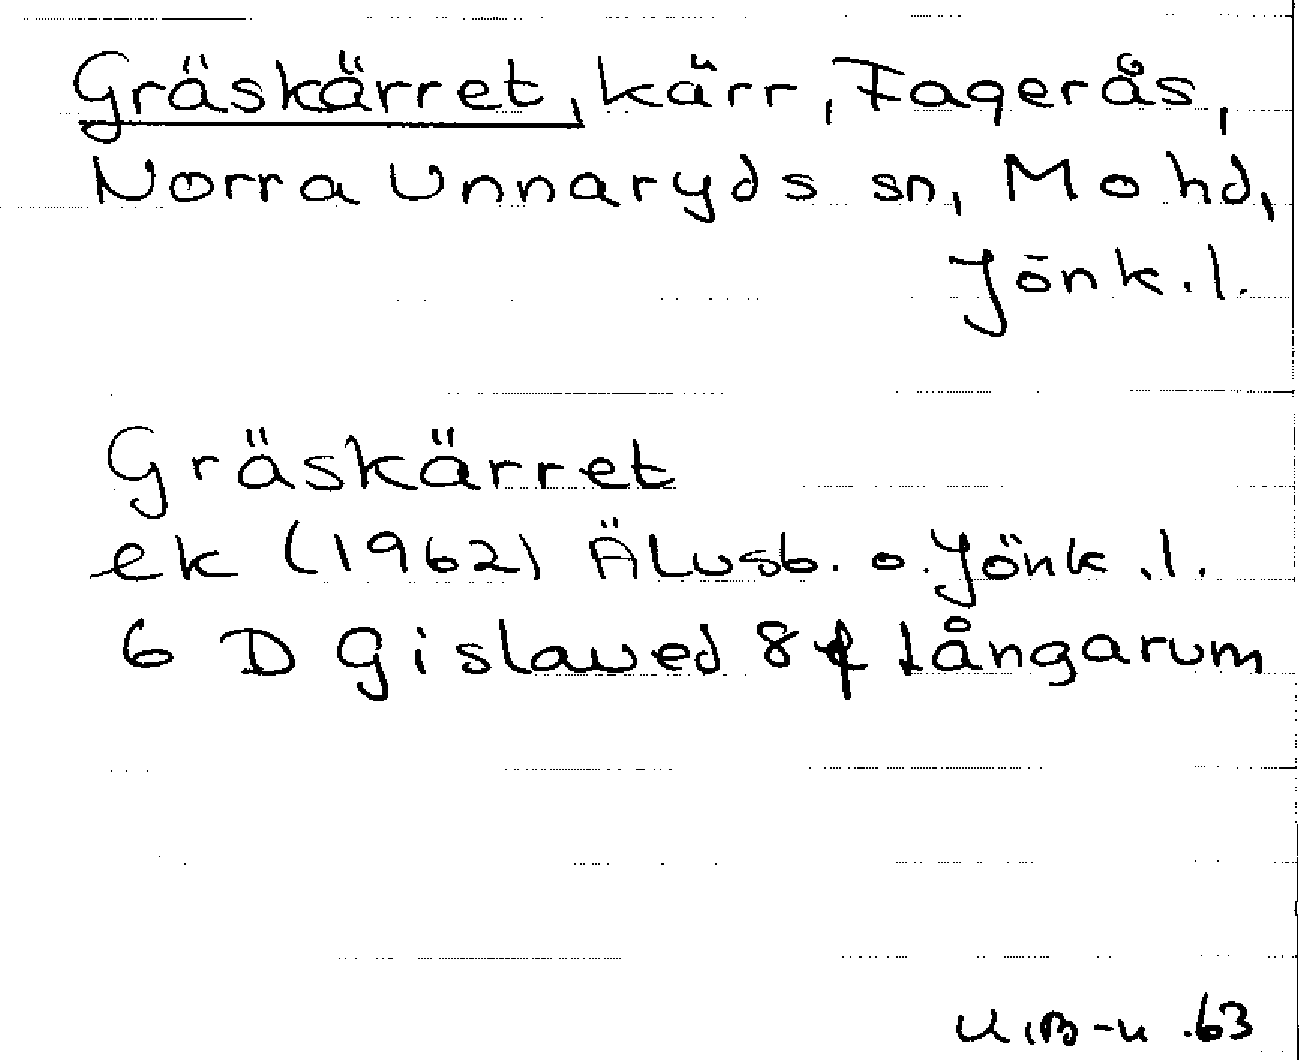 Gräskärret, kärr, Fagerås,
Norra Unnaryds sn, Mo hd,
Jönk.l.
Gräskärret
ek (1962) Älvsb. o. Jönk.l.
6 D Gislaved 8 f Långarum
.63